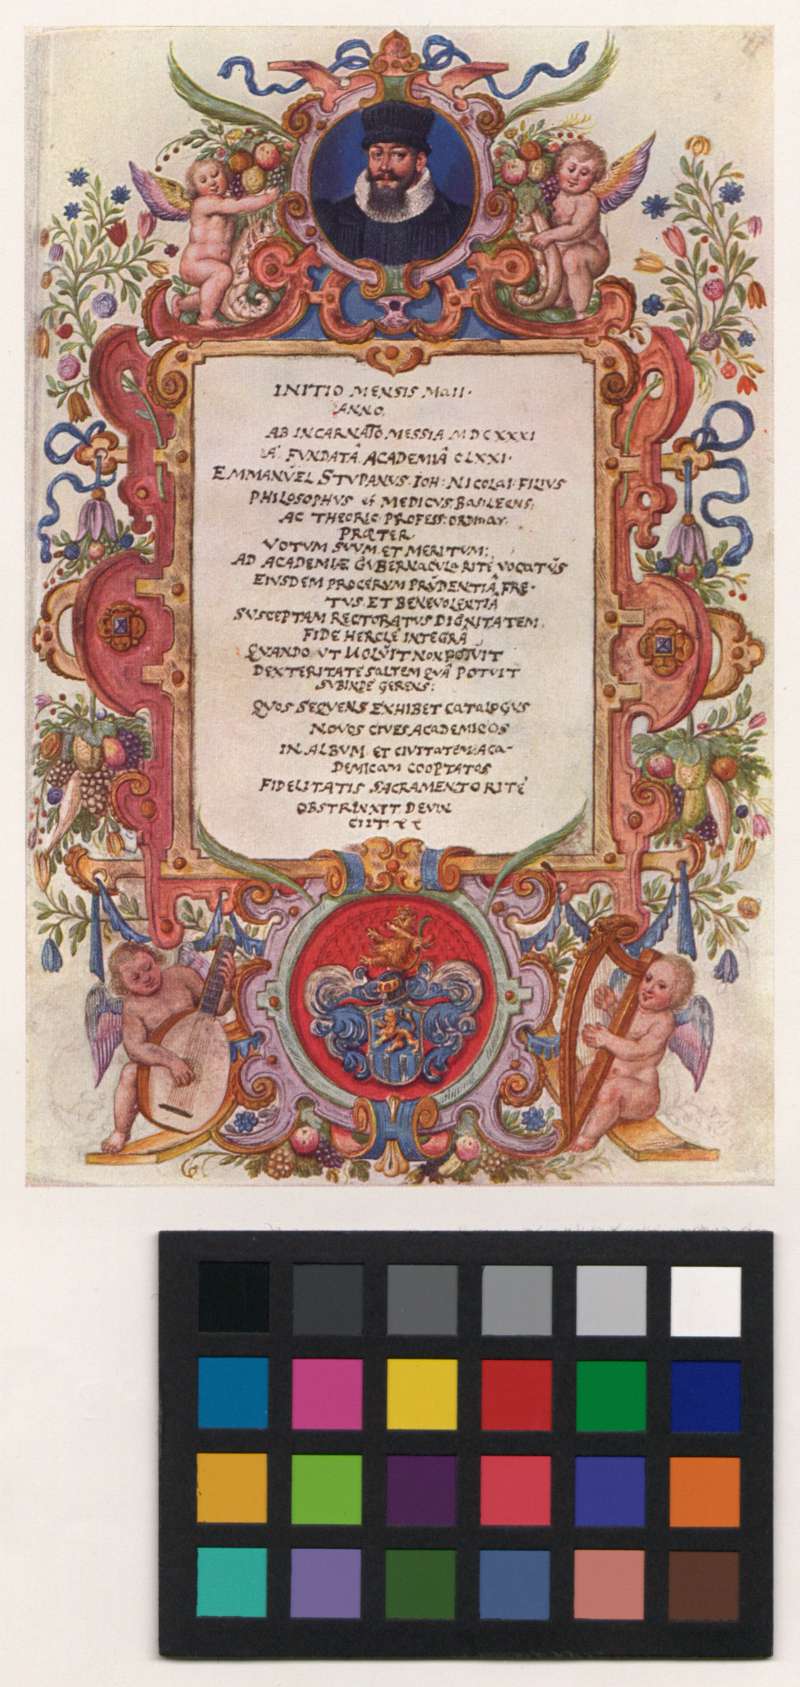 INITIO MENSIS MAII.
ANNO.
AB INCARNATO MESSIA MDCXXXI
Â FUNDATÂ ACADEMIÂ CLXXI.
EMMANVEL STVPANVS. IOH: NICOLAI FILIVS
PHILOSOPHVS et MEDICVS BASILEENS:
AC THEORIC: PROFESS: ORDINAR.
PRÆTER
VOTVM SVVM ET MERITVM;
AD ACADEMIÆ GVBERNACVLA RITÈ VOCATVS
EIVSDEM PROCERVM PRVDENTIÂ, FRE-
TVS ET BENEVOLENTIA
SVSCEPTAM RECTORATVS DIGNITATEM,
FIDE HERCLE INTEGRA
QVANDO VT VOLVIT NON POTVIT
DEXTERITATE SALTEM QVÂ POTVIT
SVBINDE GERENS:
QVOS SEQVENS EXHIBET CATALOGVS
NOVOS CIVES ACADEMICOS
IN ALBVM ET CIVITATEM ACA-
DEMICAM COOPTATOS
FIDELITATIS SACRAMENTO RITÈ
OBSTRINXIT DEVIN
CIIT